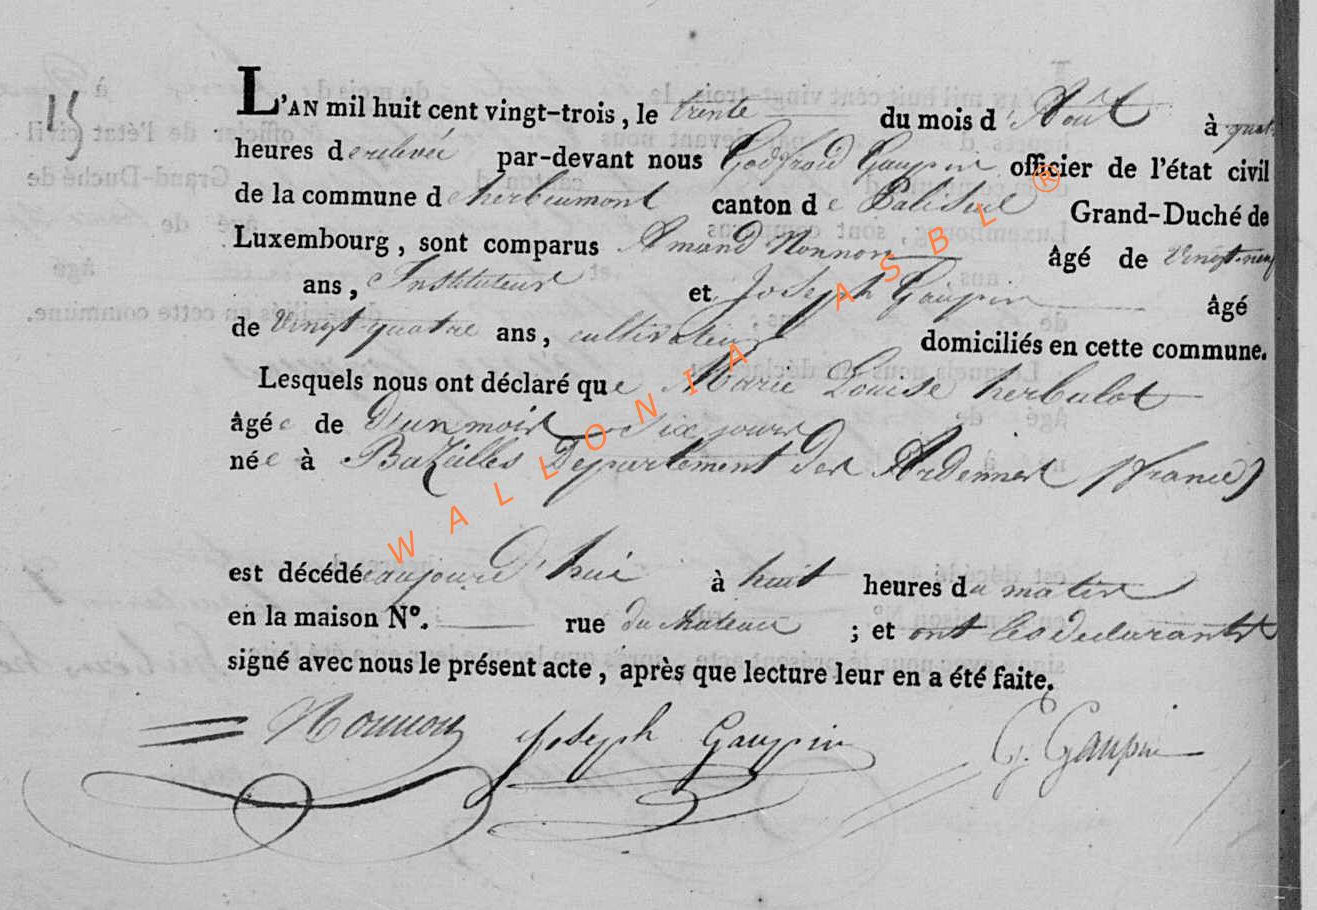 15
L'AN mil huit cent vingt-trois, le trente du mois d'Août à quat
heures de relevée par-devant nous Godfroid Gaupin officier de l'état civil
de la commune d'herbeumont canton de Paliseul Grand-Duché de
Luxembourg, sont comparus Amand Nonnon âgé de Vingt-neuf
ans, Instituteur et Joseph Gaupin âgé
de Vingt-quatre ans, cultivateur domiciliés en cette commune.
Lesquels nous ont déclaré que Marie Louise herbulot
âgée de D'un mois six jours
née à Bazeilles Departement des Ardennes (france)
est décédée aujourd'hui à huit heures du matin
en la maison N°. rue du chateau ; et ont les declarants
signé avec nous le présent acte, après que lecture leur en a été faite.
Nonnon Joseph Gaupin G. Gaupin
WALLONIA ASBL ®